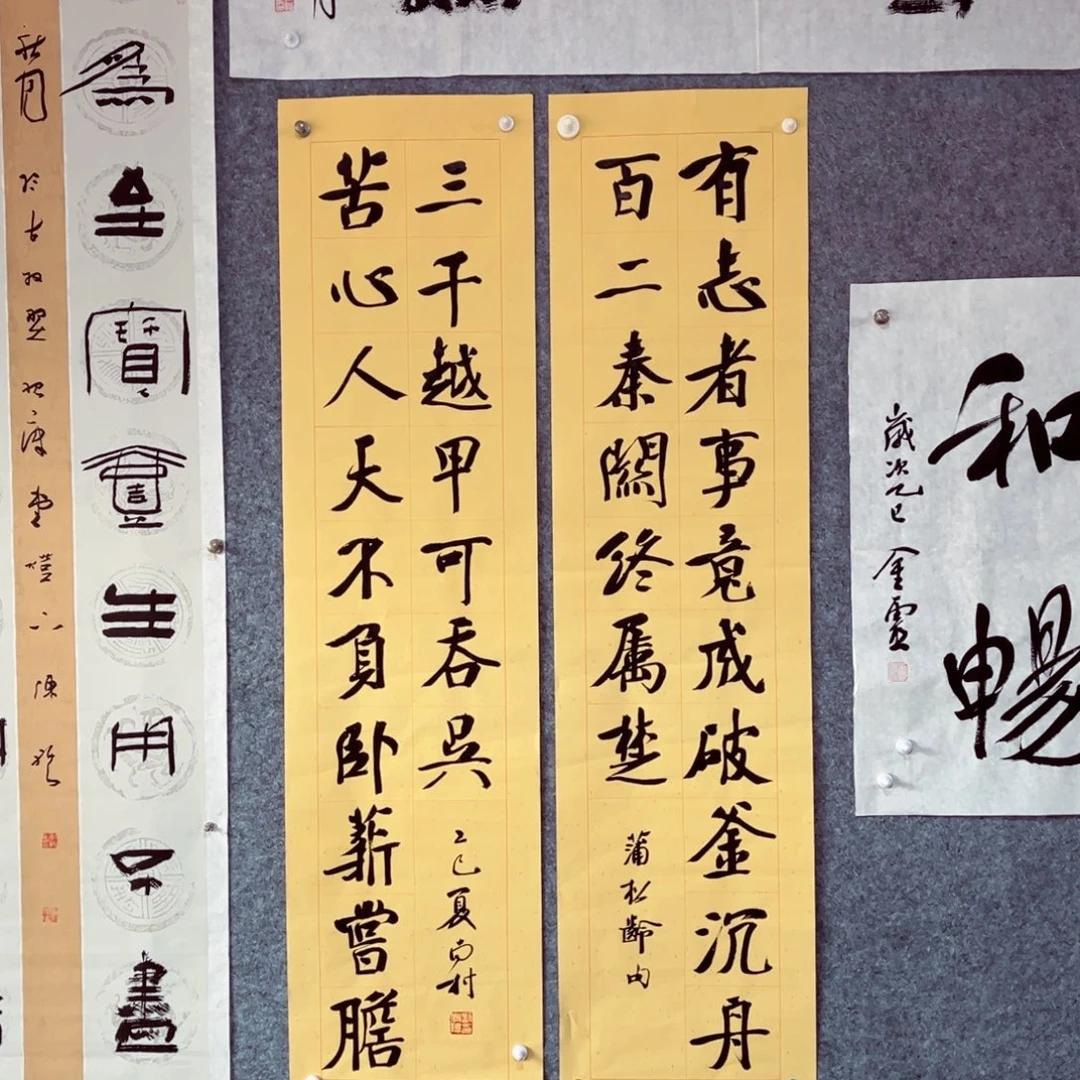 和暢
歲次乙巳
有志者事竟成破釜沉舟
百二秦關終屬楚
蒲松齡句
苦心人天不負卧薪嘗膽
三千越甲可吞吳
乙巳夏尚村
為至寶壹生用不盡